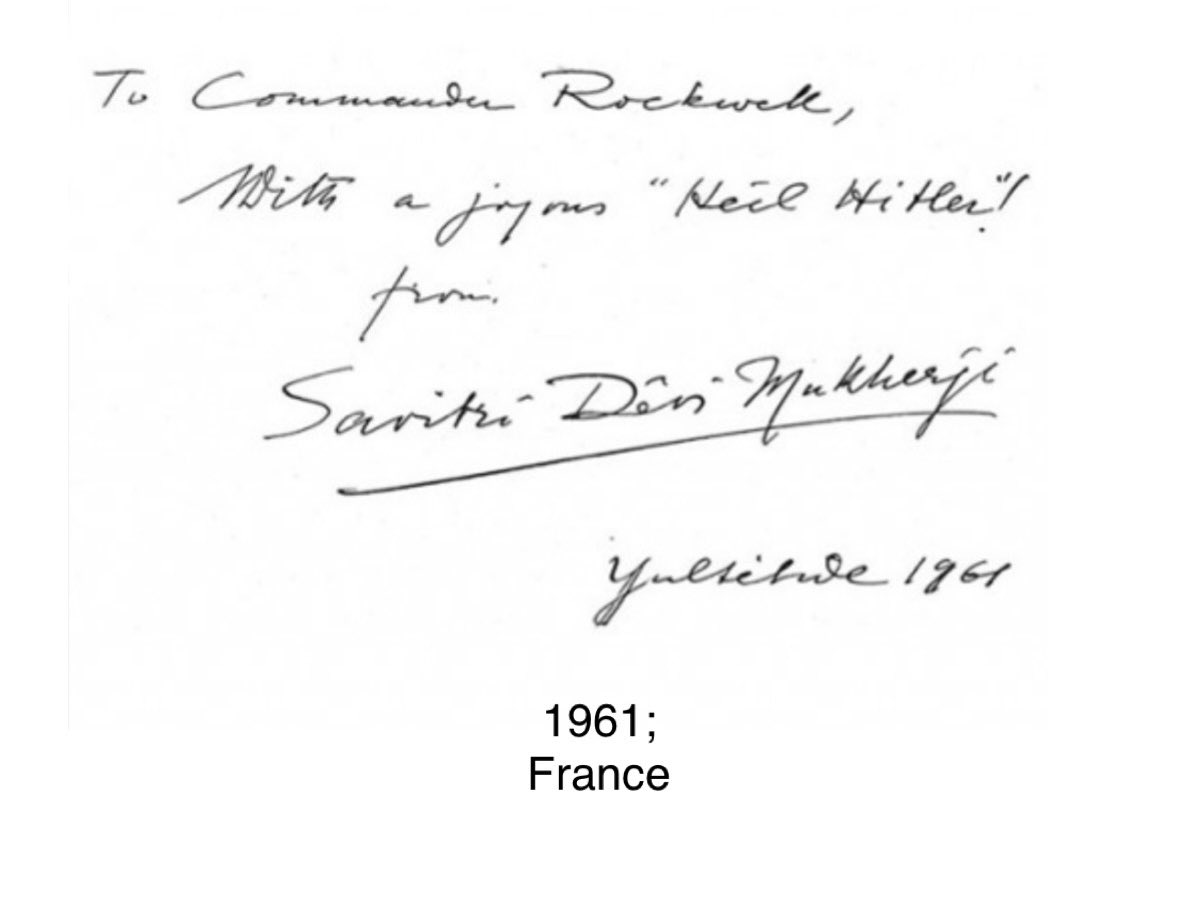 To Commander Rockwell,
With a joyous "Heil Hitler"!
from
Savitri Dêvi Mukherji
Yuletide 1961
1961;
France